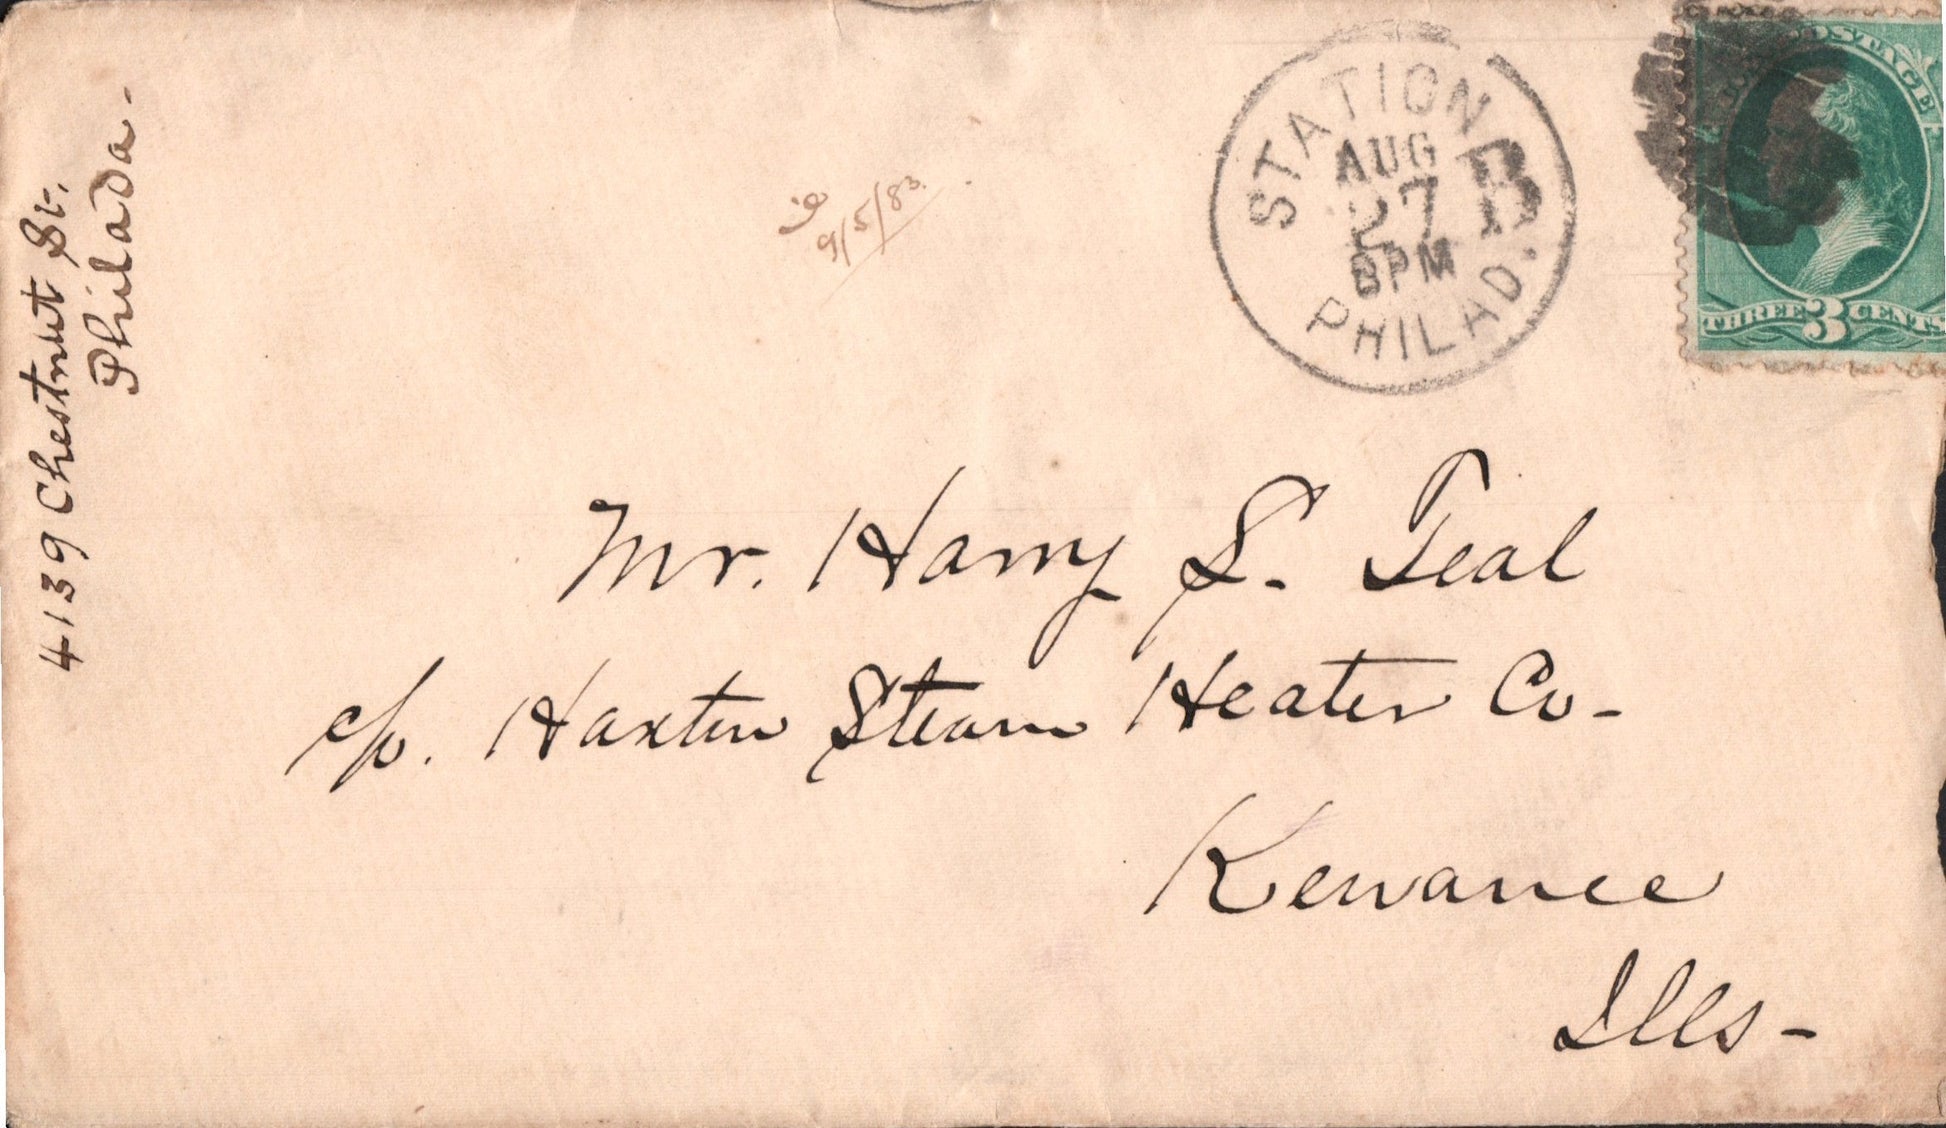 4139 Chestnut St.
Philada.
9/5/83.
STATION B
AUG
27
PHILAD.
POSTAGE
THREE 3 CENTS
Mr. Harry S. Teal
c/o. Haxtun Steam Heater Co-
Kewanee
Ills-